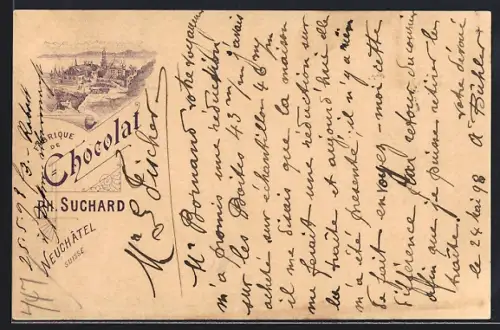 FABRIQUE
DE
Chocolat
PH. SUCHARD
NEUCHÂTEL
SUISSE
25.5.98
Mr S Fischer
Mr Bornand votre voyageur
m'a promis une réduction
sur les Boites 43 m/m j'avais
acheté sur échantillon 46 m/m
il me disais que la maison
me ferait une réduction sur
la traite et aujourd'hui elle
m'a été présenté il n'y a rien
de fait envoyez-moi cette
différence par retour du courrier
afin que je puisse retirer la
traite.
votre dévoué
le 24 Mai 98 A Bühler